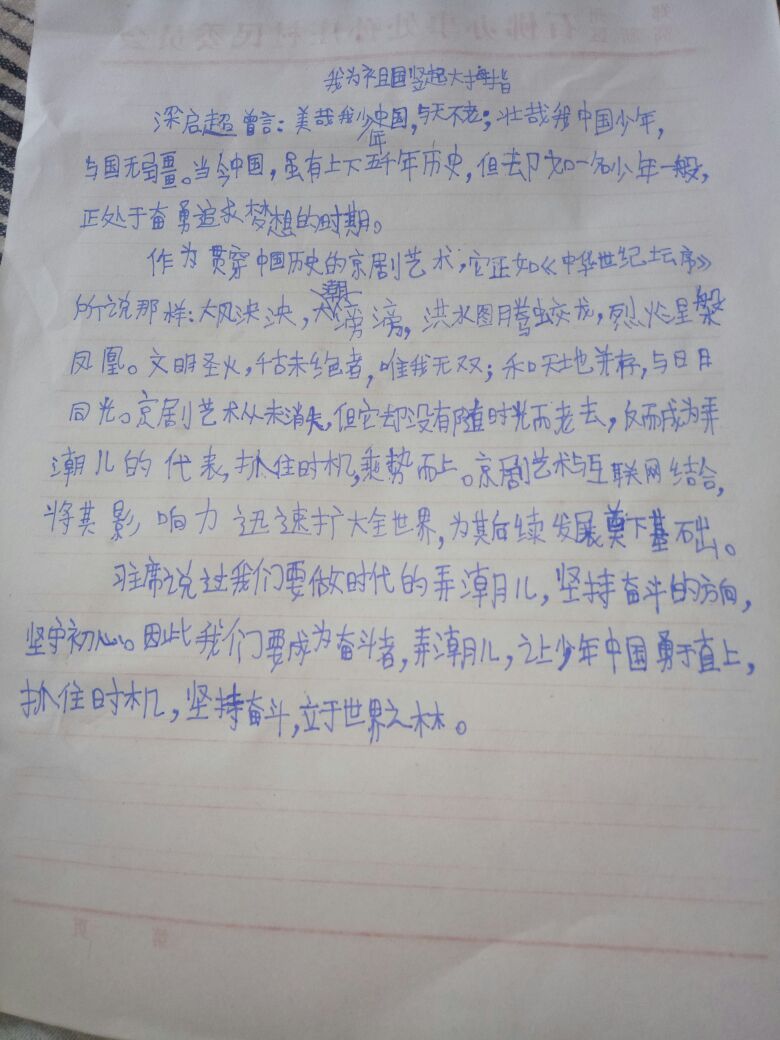 石佛办事处孙庄村民委员会
我为祖国竖起大拇指
梁启超曾言：美哉我少年中国，与天不老；壮哉我中国少年，
与国无疆。当今中国，虽有上下五千年历史，但却如一名少年一般，
正处于奋勇追求梦想的时期。
作为贯穿中国历史的京剧艺术，它正如《中华世纪坛序》
所说那样：大风泱泱，大潮滂滂，洪水图腾蛟龙，烈火涅槃
凤凰。文明圣火，千古未绝者，唯我无双；和天地并存，与日月
同光。京剧艺术从未消失，但它却没有随时光而老去，反而成为弄
潮儿的代表，抓住时机，乘势而上。京剧艺术与互联网结合，
将其影响力迅速扩大全世界，为其后续发展奠下基础。
习主席说过我们要做时代的弄潮儿，坚持奋斗的方向，
坚守初心。因此我们要成为奋斗者，弄潮儿，让少年中国勇于直上，
抓住时机，坚持奋斗，立于世界之林。
第 页